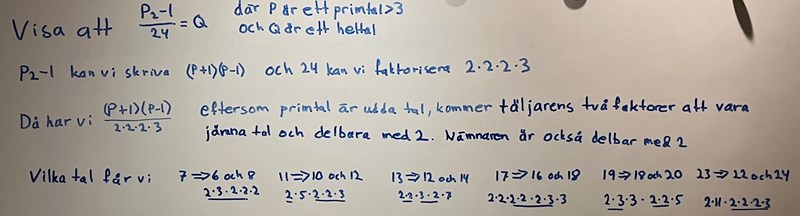 Visa att P2-1/24 = Q där P är ett primtal>3
och Q är ett heltal
P2-1 kan vi skriva (P+1)(P-1) och 24 kan vi faktorisera 2·2·2·3
Då har vi (P+1)(P-1)/2·2·2·3 eftersom primtal är udda tal, kommer täljarens två faktorer att vara
jämna tal och delbara med 2. Nämnaren är också delbar med 2
Vilka tal får vi 7⇒6 och 8 11⇒10 och 12 13⇒12 och 14 17⇒16 och 18 19⇒18 och 20 23⇒22 och 24
2·3·2·2·2 2·5·2·2·3 2·2·3·2·7 2·2·2·2·2·3·3 2·3·3·2·2·5 2·11·2·2·2·3